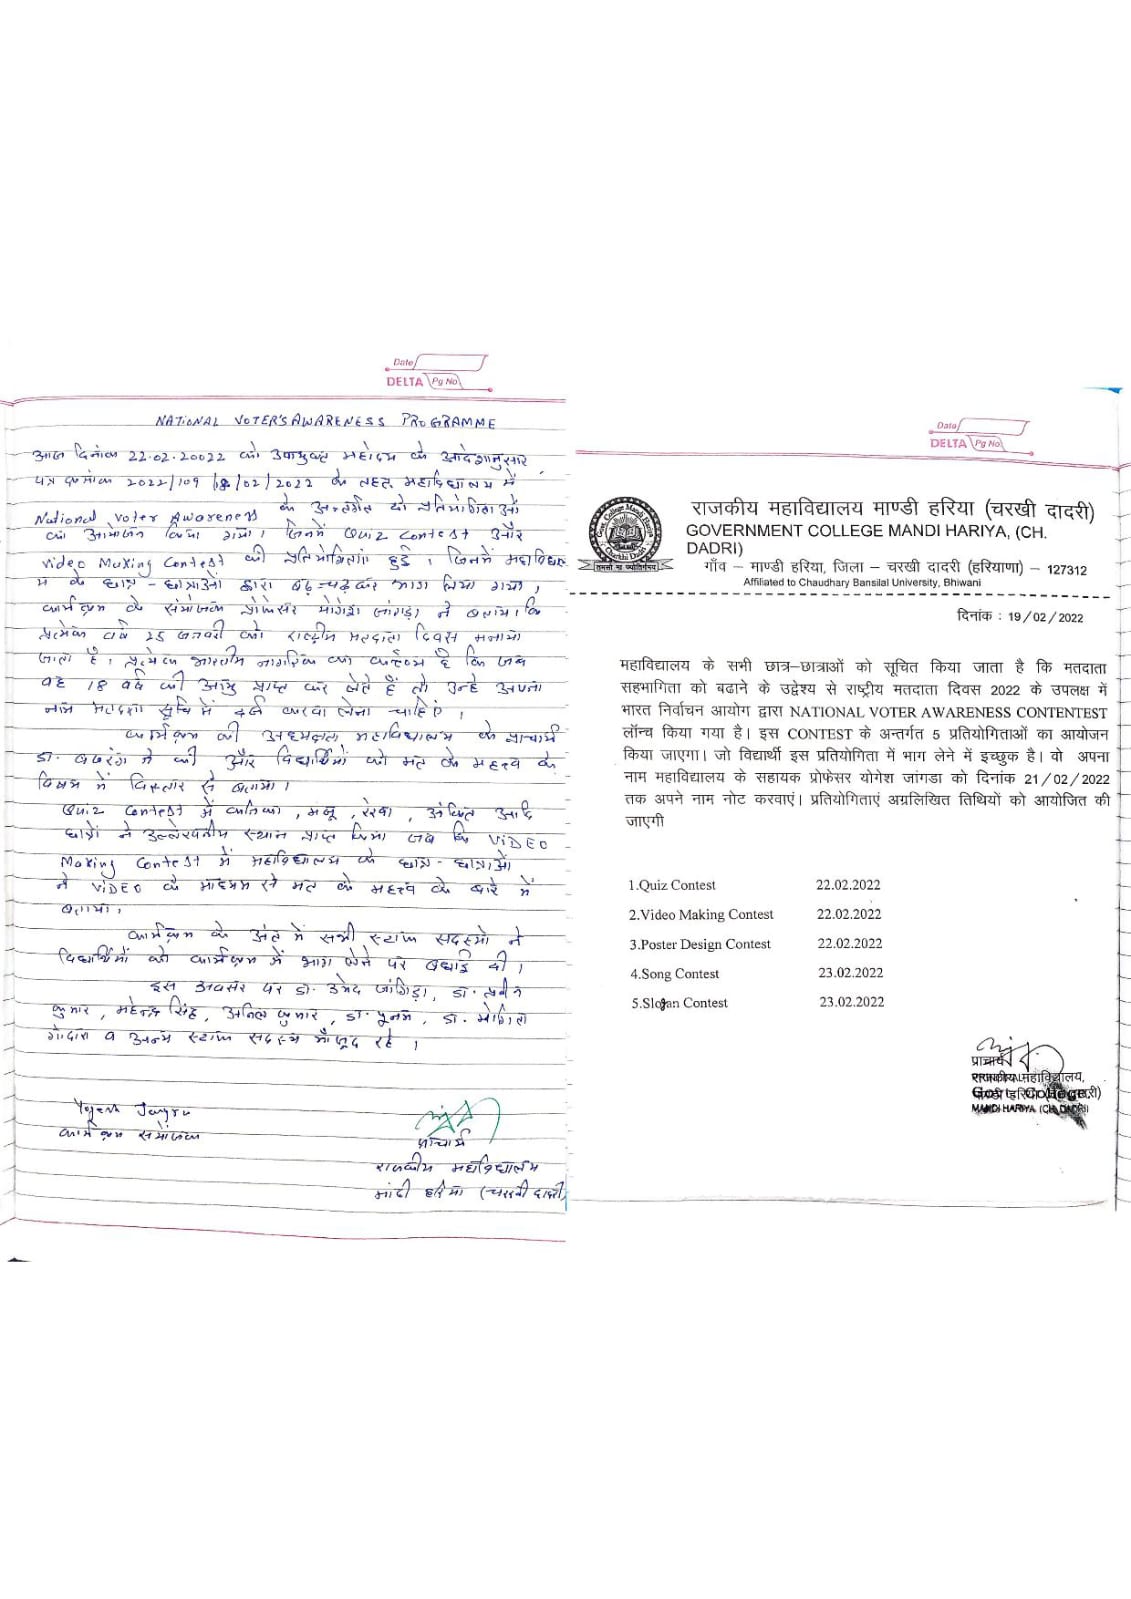 Date
DELTA Pg No.
NATIONAL VOTER'S AWARENESS PROGRAMME
आज दिनांक 22.02.20022 को उपायुक्त महोदय के आदेशानुसार
पत्र क्रमांक 2022/109 18/02/2022 के तहत महाविद्यालय में
National Voter Awareness के अन्तर्गत दो प्रतियोगिताओं
का आयोजन किया गया। जिनमें Quiz contest और
Video Making Contest की प्रतियोगिताएं हुई। जिनमें महाविद्याल
य के छात्र-छात्राओं द्वारा बढ़-चढ़कर भाग लिया गया।
कार्यक्रम के संयोजक प्रोफेसर योगेश जांगड़ा ने बताया कि
प्रत्येक वर्ष 25 जनवरी को राष्ट्रीय मतदाता दिवस मनाया
जाता है। प्रत्येक भारतीय नागरिक का कर्तव्य है कि जब
वह 18 वर्ष की आयु प्राप्त कर लेते हैं तो उन्हें अपना
नाम मतदाता सूचि में दर्ज करवा लेना चाहिए।
कार्यक्रम की अध्यक्षता महाविद्यालय के प्राचार्य
डा. बजरंग ने की और विद्यार्थियों को मत के महत्त्व के
विषय में विस्तार से बताया।
Quiz Contest में कविता, मन्जू, रेखा, अंकित आदि
छात्रों ने उल्लेखनीय स्थान प्राप्त किया जब कि VIDEO
Making Contest में महाविद्यालय के छात्र-छात्राओं
ने VIDEO के माध्यम से मत के महत्त्व के बारे में
बताया।
कार्यक्रम के अंत में सभी स्टाफ सदस्यों ने
विद्यार्थियों को कार्यक्रम में भाग लेने पर बधाई दी।
इस अवसर पर डा. उमेद जांगिड़ा, डा. प्रवीन
कुमार, महेन्द्र सिंह, अनिल कुमार, डा. पूनम, डा. मोनिका
गोदारा व अन्य स्टाफ सदस्य मौजूद रहे।
Yogesh Jangra
कार्यक्रम संयोजक
प्राचार्य
राजकीय महाविद्यालय
मांढी हरिया (चरखी दादरी)
Date
DELTA Pg No.
राजकीय महाविद्यालय माण्डी हरिया (चरखी दादरी)
GOVERNMENT COLLEGE MANDI HARIYA, (CH.
DADRI)
गाँव – माण्डी हरिया, जिला – चरखी दादरी (हरियाणा) – 127312
Affiliated to Chaudhary Bansilal University, Bhiwani
दिनांक : 19/02/2022
महाविद्यालय के सभी छात्र–छात्राओं को सूचित किया जाता है कि मतदाता
सहभागिता को बढाने के उद्वेश्य से राष्ट्रीय मतदाता दिवस 2022 के उपलक्ष में
भारत निर्वाचन आयोग द्वारा NATIONAL VOTER AWARENESS CONTENTEST
लॉन्च किया गया है। इस CONTEST के अन्तर्गत 5 प्रतियोगिताओं का आयोजन
किया जाएगा। जो विद्यार्थी इस प्रतियोगिता में भाग लेने में इच्छुक है। वो अपना
नाम महाविद्यालय के सहायक प्रोफेसर योगेश जांगडा को दिनांक 21/02/2022
तक अपने नाम नोट करवाएं। प्रतियोगिताएं अग्रलिखित तिथियों को आयोजित की
जाएगी
1.Quiz Contest 22.02.2022
2.Video Making Contest 22.02.2022
3.Poster Design Contest 22.02.2022
4.Song Contest 23.02.2022
5.Slogan Contest 23.02.2022
प्राचार्य
राजकीय महाविद्यालय,
Govt. College,
MANDI HARIYA (CH. DADRI)